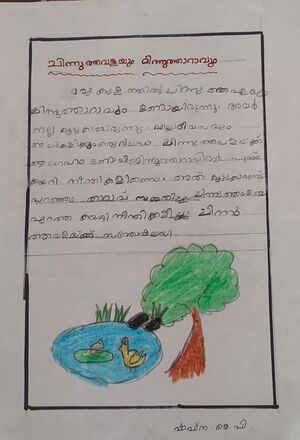 ചിന്നുത്തവളയും മിന്നുത്താറാവും
ഒരു കുളത്തിൽ ചിന്നു ത്തവളയും
മിന്നുത്താറാവും ഉണ്ടായിരുന്നു. അവർ
നല്ല കൂട്ടുകാരായിരുന്നു. എല്ലാ ദിവസവും
ചിന്നു ത്തവളയ്ക്ക്
ആഗ്രഹം മിന്നുത്താറാവിന്റെ പുറത്ത്
കയറി നീന്തികളിക്കണം. അത് കൂട്ടുകാരനോട്
പറഞ്ഞു. താറാവ് സമ്മതിച്ചു. ചിന്നുത്തവള
പുറത്ത് കയറി നീന്തിക്കളിച്ചു. ചിന്നു
ത്തവളയ്ക്ക് സന്തോഷമായി.
ഷഹന. കെ. പി.